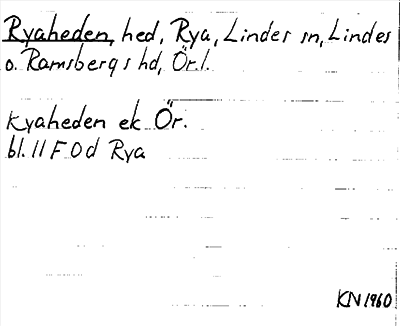 Ryaheden, hed, Rya, Lindes sn, Lindes
o. Ramsbergs hd, Ör.l.
Kyaheden ek Ör.
bl. 11 F 0 d Rya
KN 1960